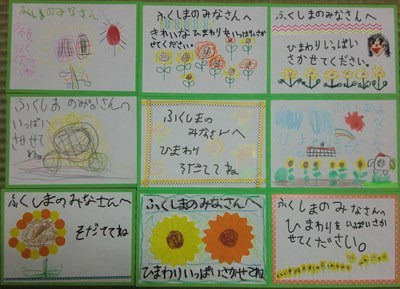 ふくしまのみなさんへ
ふくしまのみなさんへ
きれいな ひまわりを いっぱいさかせて
ください。
ふくしまのみなさんへ
ひまわりいっぱい
さかせてください。
ふくしまのみなさんへ
いっぱい
さかせて
ね。
ふくしまの
みなさんへ
ひまわり
そだててね
ふくしまのみなさんへ
そだててね
ふくしまのみなさんへ
ひまわりいっぱいさかせてね
ふくしまのみなさんへ
ひまわりをいっぱいさか
せてください。